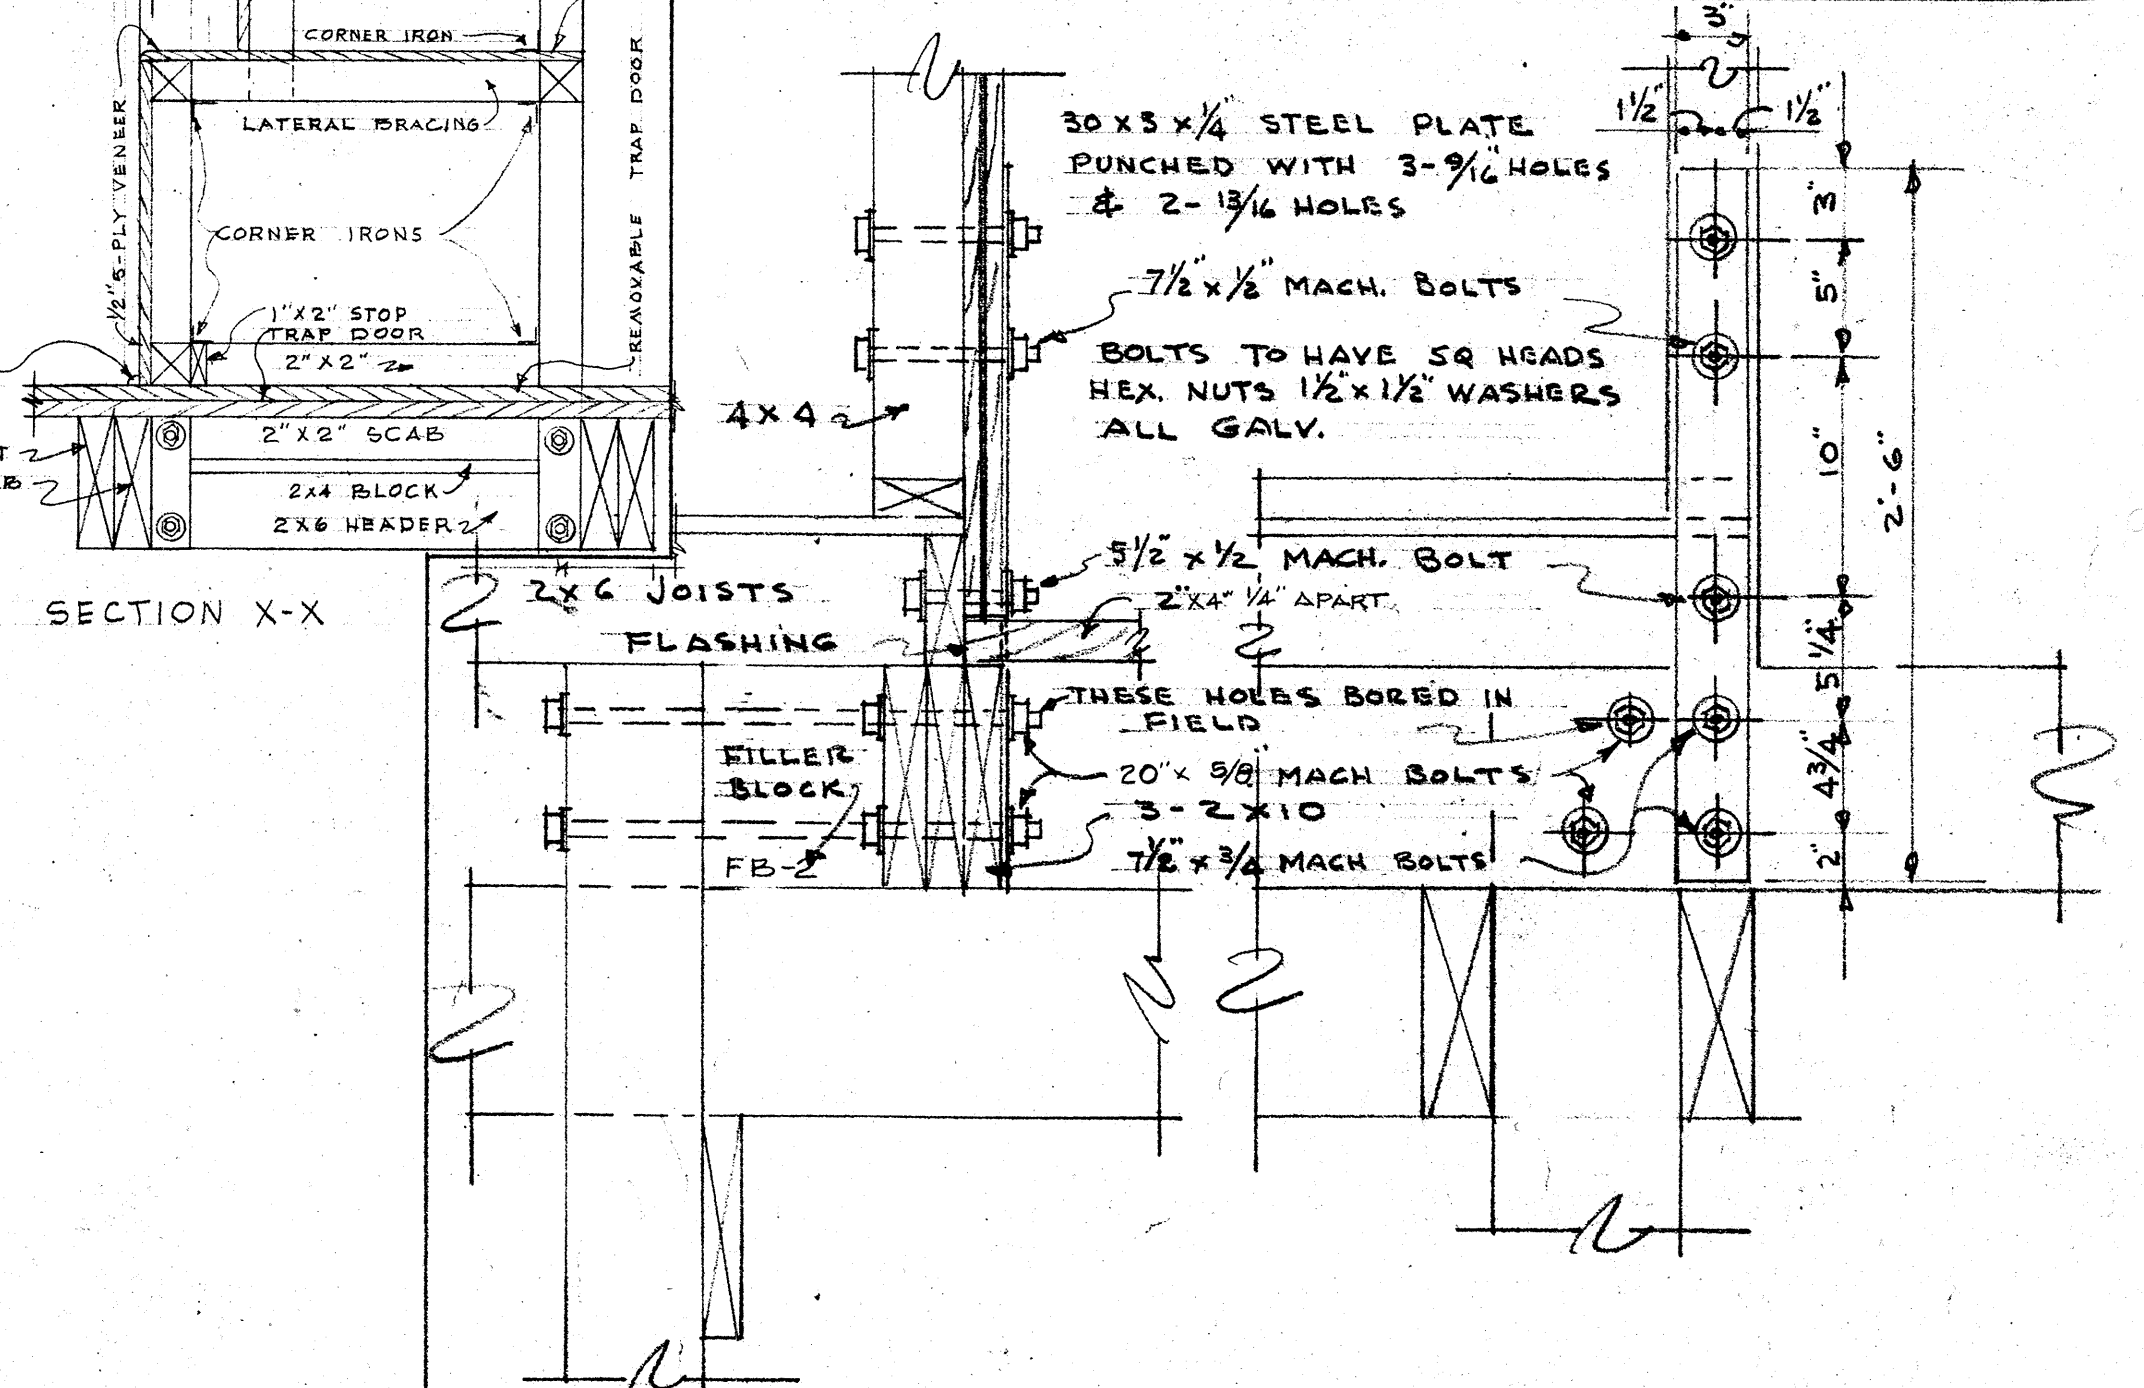 CORNER IRON
LATERAL BRACING
1/2" 5-PLY VENEER
REMOVABLE TRAP DOOR
CORNER IRONS
1"X2" STOP
TRAP DOOR
2"X2"
2"X2" SCAB
2X4 BLOCK
2X6 HEADER
SECTION X-X
30 X 3 X 1/4" STEEL PLATE
PUNCHED WITH 3-9/16" HOLES
& 2-13/16 HOLES
7 1/2" X 1/2" MACH. BOLTS
BOLTS TO HAVE SQ HEADS
HEX. NUTS 1 1/2" X 1 1/2" WASHERS
ALL GALV.
4 X 4
5 1/2" X 1/2 MACH. BOLT
2"X4" 1/4" APART
2 X 6 JOISTS
FLASHING
THESE HOLES BORED IN
FIELD
FILLER
BLOCK
FB-2
20" X 5/8" MACH BOLTS
3 - 2 X 10
7 1/2" X 3/4 MACH BOLTS
3"
1 1/2"
1 1/2"
3"
5"
10"
2'-6"
5 1/4"
4 3/4"
2"